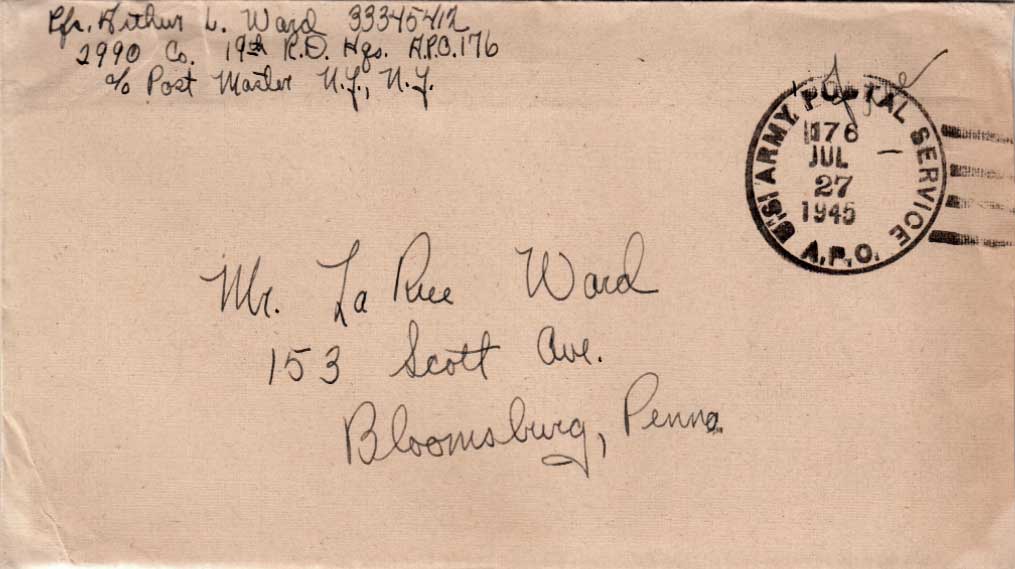 Pfc. Arthur L. Ward 33345412
2990 Co. 19th R.D. Hqs. A.P.O. 176
c/o Post Master N.Y., N.Y.
Free
U.S. ARMY POSTAL SERVICE
176
JUL
27
1945
A.P.O.
Mr. La Rue Ward
153 Scott Ave.
Bloomsburg, Penna.